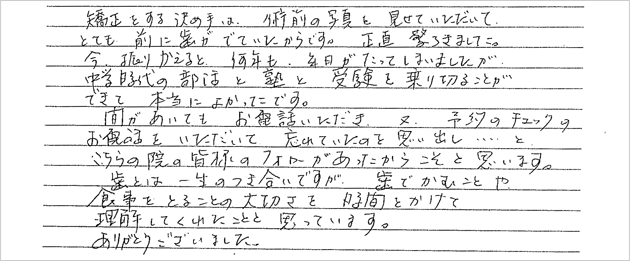 矯正をする決め手は、術前の写真を見せていただいて、
とても前に歯がでていたからです。正直驚ろきました。
今、振りかえると、何年も、年月がたってしまいましたが、
中学時代の部活と塾と受験を乗り切ることが
できて本当によかったです。
間があいてもお電話いただき、又、予約のチェックの
お電話をいただいて忘れていたのを思い出し……と
こちらの院の皆様のフォローがあったからこそと思います。
歯とは一生のつき合いですが、歯でかむことや
食事をとることの大切さを時間をかけて
理解してくれたことと思っています。
ありがとうございました。